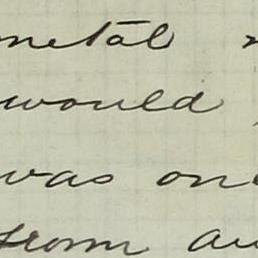 metal
would
was on
from au